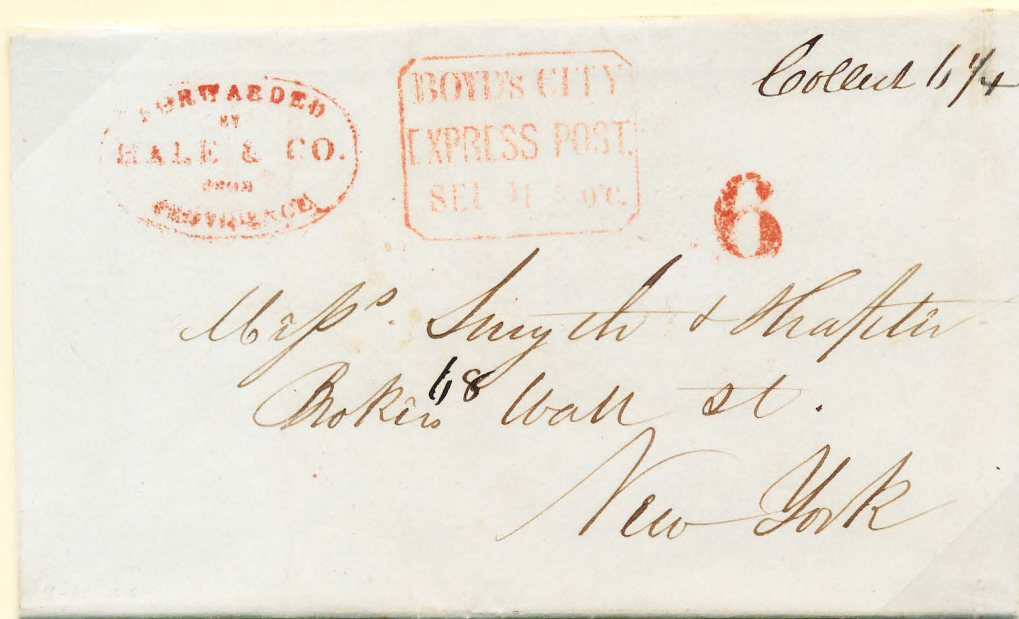 FORWARDED
BY
HALE & CO.
FROM
PROVIDENCE
BOYD'S CITY
EXPRESS POST.
SEP 11 O'C.
Collect 6 1/4
6
Messrs. Smyth &
Brokers 68 Wall St.
New York